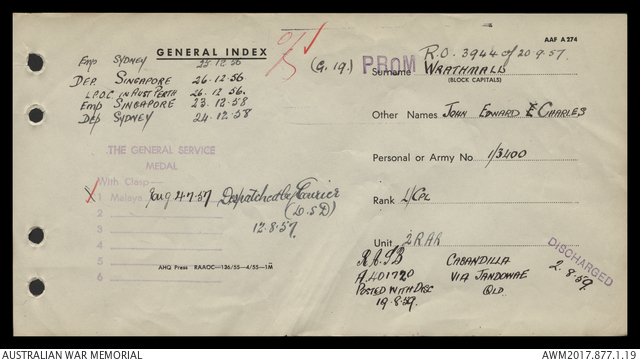 AAF A274
GENERAL INDEX
Emp SYDNEY 25.12.56
DEP. SINGAPORE 26.12.56
L.P.O.C in AUST PERTH 26.12.56.
EMP SINGAPORE 23.12.58
DEP SYDNEY 24.12.58
(G.19.) PROM R.O. 3944 of 20.9.57.
Surname WRATHMALL
(BLOCK CAPITALS)
Other Names JOHN EDWARD & CHARLES
Personal or Army No 1/3400
Rank L/CPL
Unit 2RAR
THE GENERAL SERVICE
MEDAL
With Clasp—
X1 Malaya 4.7.57 Despatched by Courier
2 (D.S.D)
3 12.8.57.
4
5
6
AHQ Press RAAOC—136/55—4/55—1M
R.A.S.B
A401720
POSTED WITH DISC
19.8.59.
CABANDILLA
VIA JANDOWAE
QLD.
DISCHARGED
2.8.59.
AUSTRALIAN WAR MEMORIAL
AWM2017.877.1.19